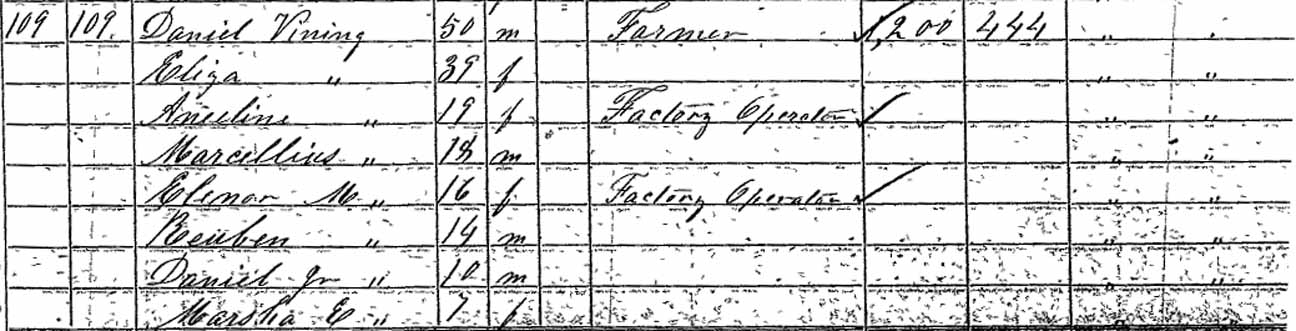 109 109. Daniel Vining 50 m Farmer 1,200 444 " "
Eliza " 39 f " "
Aneline " 19 f Factory Operator " "
Marcellius " 18 m " "
Elenor M " 16 f Factory Operator " "
Reuben " 14 m " "
Daniel Jr " 10 m " "
Marsha E " 7 f